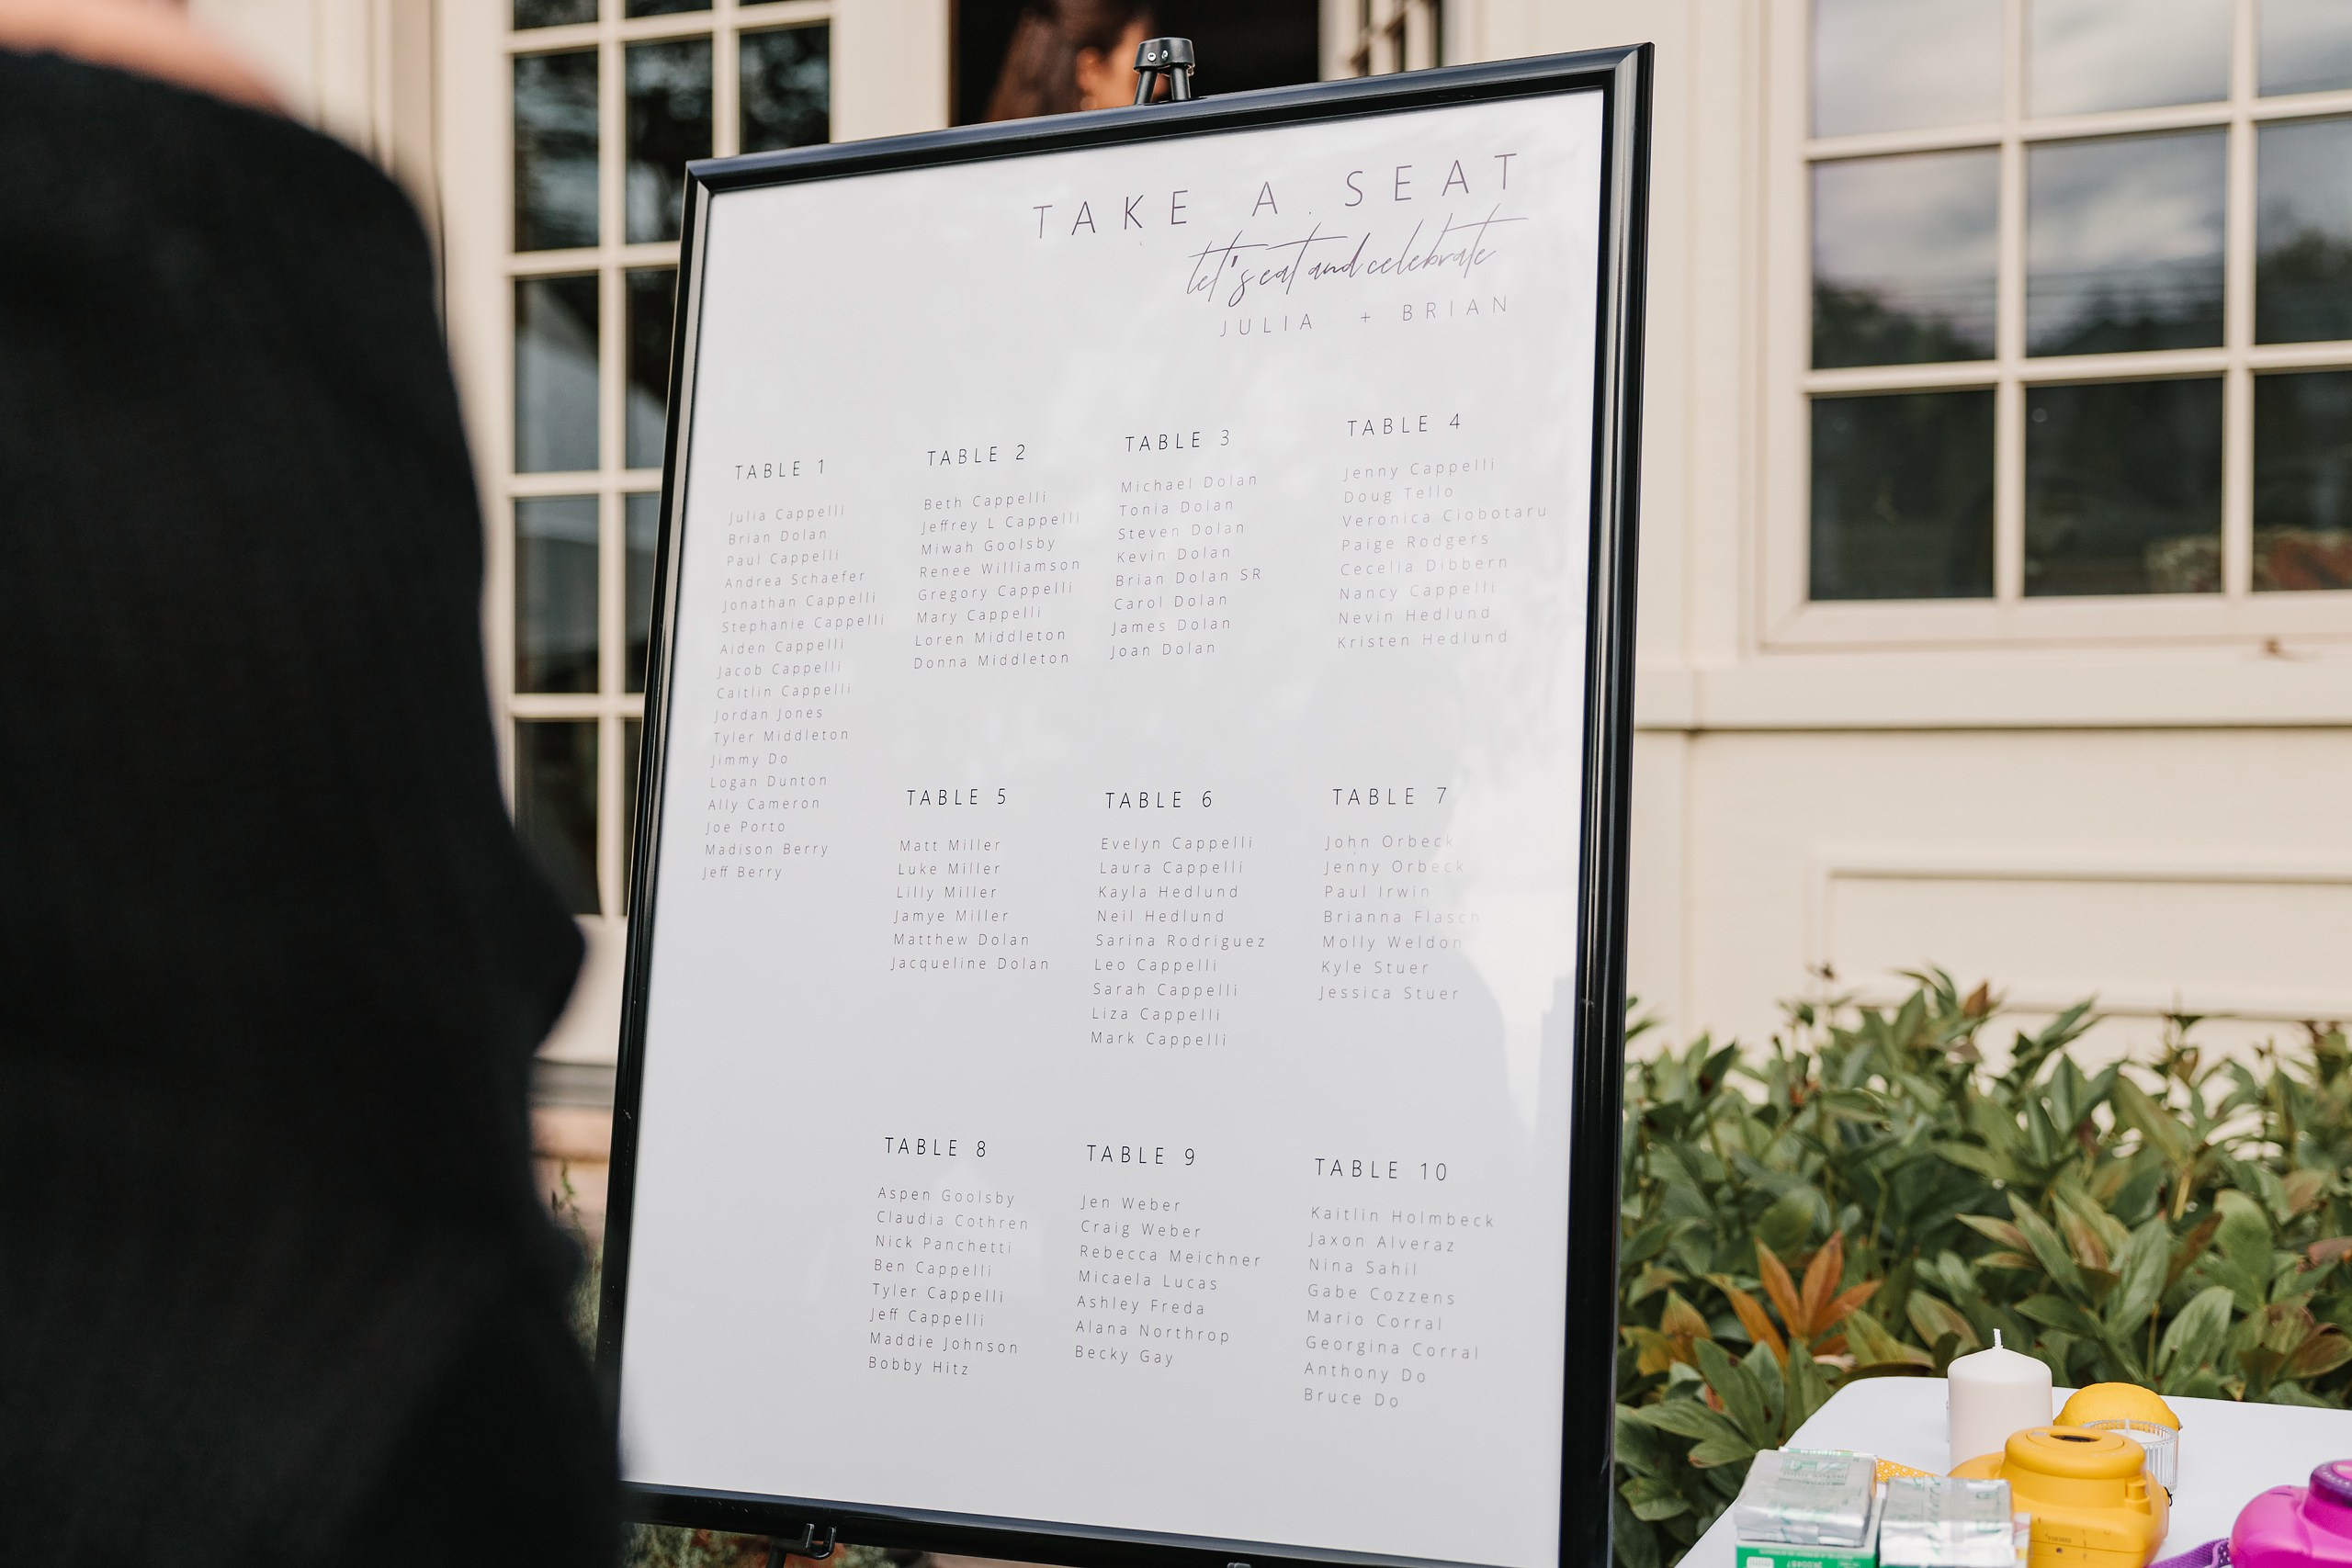 TAKE A SEAT
let's eat and celebrate
JULIA + BRIAN
TABLE 1
Julia Cappelli
Brian Dolan
Paul Cappelli
Andrea Schaefer
Jonathan Cappelli
Stephanie Cappelli
Aiden Cappelli
Jacob Cappelli
Caitlin Cappelli
Jordan Jones
Tyler Middleton
Jimmy Do
Logan Dunton
Ally Cameron
Joe Porto
Madison Berry
Jeff Berry
TABLE 2
Beth Cappelli
Jeffrey L Cappelli
Miwah Goolsby
Renee Williamson
Gregory Cappelli
Mary Cappelli
Loren Middleton
Donna Middleton
TABLE 3
Michael Dolan
Tonia Dolan
Steven Dolan
Kevin Dolan
Brian Dolan SR
Carol Dolan
James Dolan
Joan Dolan
TABLE 4
Jenny Cappelli
Doug Tello
Veronica Ciobotaru
Paige Rodgers
Cecelia Dibbern
Nancy Cappelli
Nevin Hedlund
Kristen Hedlund
TABLE 5
Matt Miller
Luke Miller
Lilly Miller
Jamye Miller
Matthew Dolan
Jacqueline Dolan
TABLE 6
Evelyn Cappelli
Laura Cappelli
Kayla Hedlund
Neil Hedlund
Sarina Rodriguez
Leo Cappelli
Sarah Cappelli
Liza Cappelli
Mark Cappelli
TABLE 7
John Orbeck
Jenny Orbeck
Paul Irwin
Brianna Flasch
Molly Weldon
Kyle Stuer
Jessica Stuer
TABLE 8
Aspen Goolsby
Claudia Cothren
Nick Panchetti
Ben Cappelli
Tyler Cappelli
Jeff Cappelli
Maddie Johnson
Bobby Hitz
TABLE 9
Jen Weber
Craig Weber
Rebecca Meichner
Micaela Lucas
Ashley Freda
Alana Northrop
Becky Gay
TABLE 10
Kaitlin Holmbeck
Jaxon Alveraz
Nina Sahil
Gabe Cozzens
Mario Corral
Georgina Corral
Anthony Do
Bruce Do